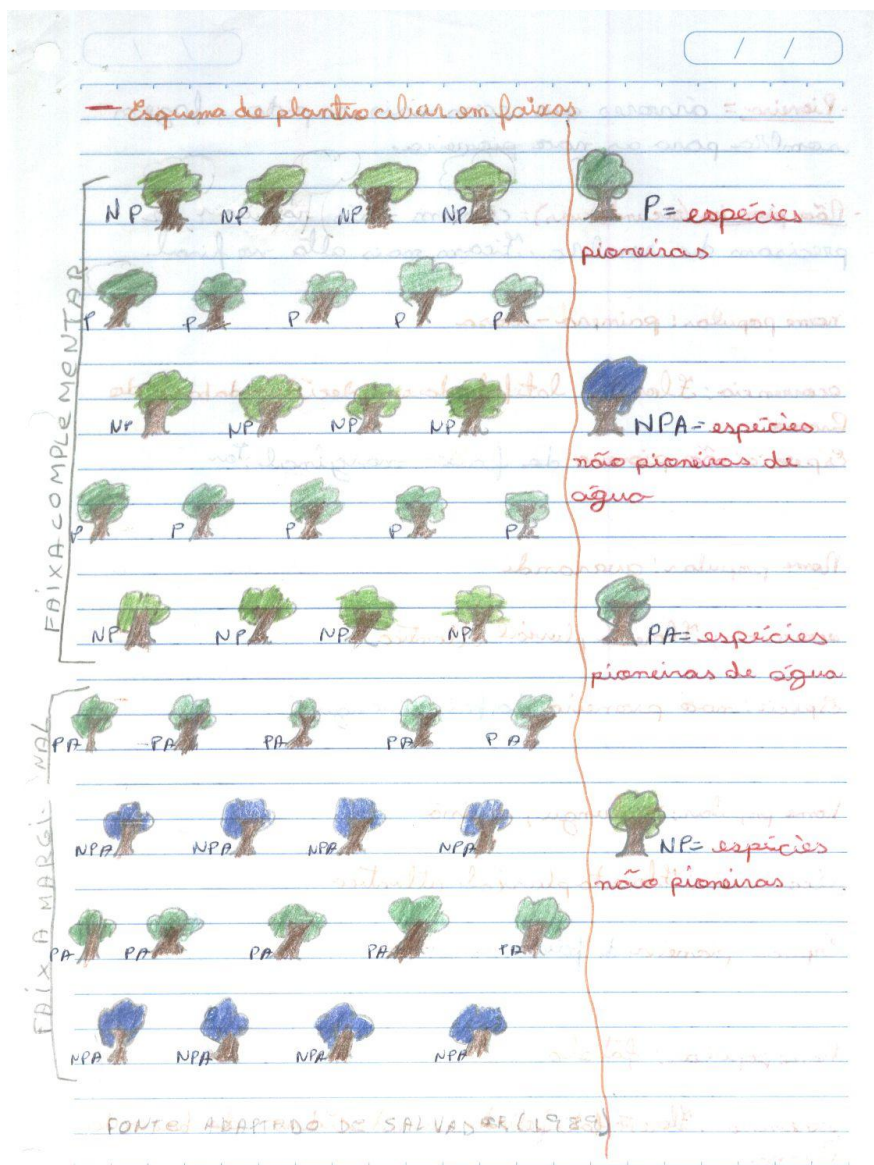 - Esquema de plantio ciliar em faixas
FAIXA COMPLEMENTAR
NP NP NP NP
P P P P P
NP NP NP NP
P P P P P
NP NP NP NP
FAIXA MARGI- NAL
PA PA PA PA PA
NPA NPA NPA NPA
PA PA PA PA PA
NPA NPA NPA NPA
P= espécies
pioneiras
NPA= espécies
não pioneiras de
água
PA= espécies
pioneiras de água
NP= espécies
não pioneiras
FONTE ADAPTADO DE SALVADOR (1989)